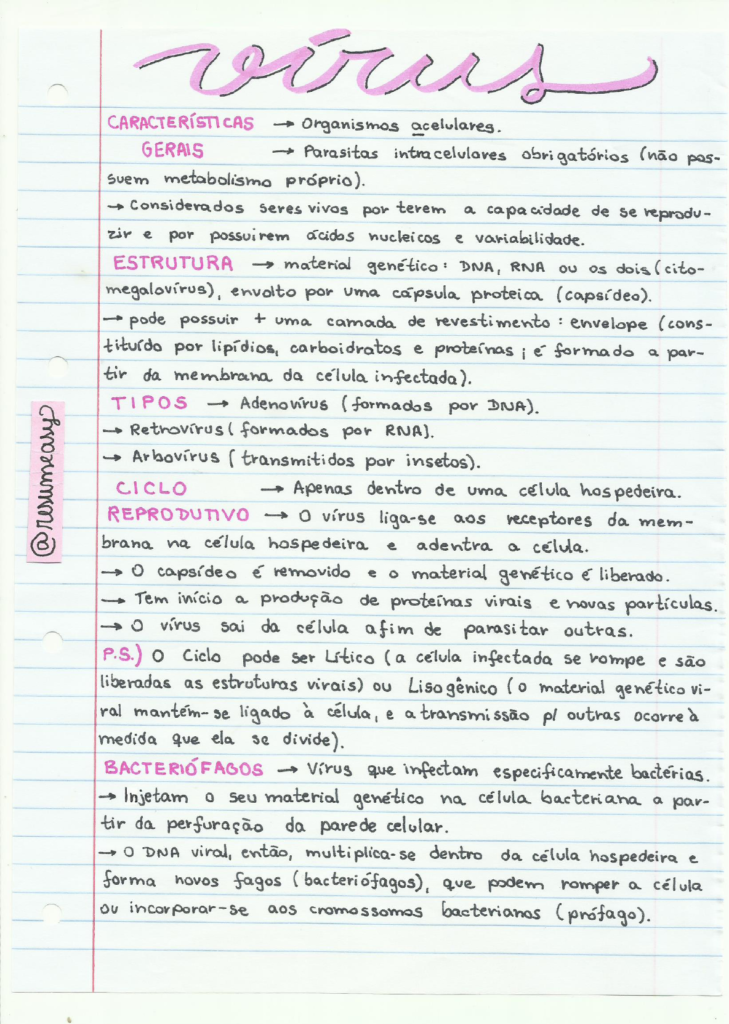 vírus
CARACTERÍSTICAS → Organismos acelulares.
GERAIS → Parasitas intracelulares obrigatórios (não pos-
suem metabolismo próprio).
→ Considerados seres vivos por terem a capacidade de se reprodu-
zir e por possuirem ácidos nucleicos e variabilidade.
ESTRUTURA → material genético: DNA, RNA ou os dois (cito-
megalovírus), envolto por uma cápsula proteica (capsídeo).
→ pode possuir + uma camada de revestimento: envelope (cons-
tituído por lipídios, carboidratos e proteínas; é formado a par-
tir da membrana da célula infectada).
TIPOS → Adenovírus (formados por DNA).
→ Retrovírus (formados por RNA).
→ Arbovírus (transmitidos por insetos).
CICLO → Apenas dentro de uma célula hospedeira.
REPRODUTIVO → O vírus liga-se aos receptores da mem-
brana na célula hospedeira e adentra a célula.
→ O capsídeo é removido e o material genético é liberado.
→ Tem início a produção de proteínas virais e novas partículas.
→ O vírus sai da célula afim de parasitar outras.
P.S.) O Ciclo pode ser Lítico (a célula infectada se rompe e são
liberadas as estruturas virais) ou Lisogênico (o material genético vi-
ral mantém-se ligado à célula, e a transmissão p/ outras ocorre à
medida que ela se divide).
BACTERIÓFAGOS → Vírus que infectam especificamente bactérias.
→ Injetam o seu material genético na célula bacteriana a par-
tir da perfuração da parede celular.
→ O DNA viral, então, multiplica-se dentro da célula hospedeira e
forma novos fagos (bacteriófagos), que podem romper a célula
ou incorporar-se aos cromossomos bacterianos (prófago).
@resumeasy